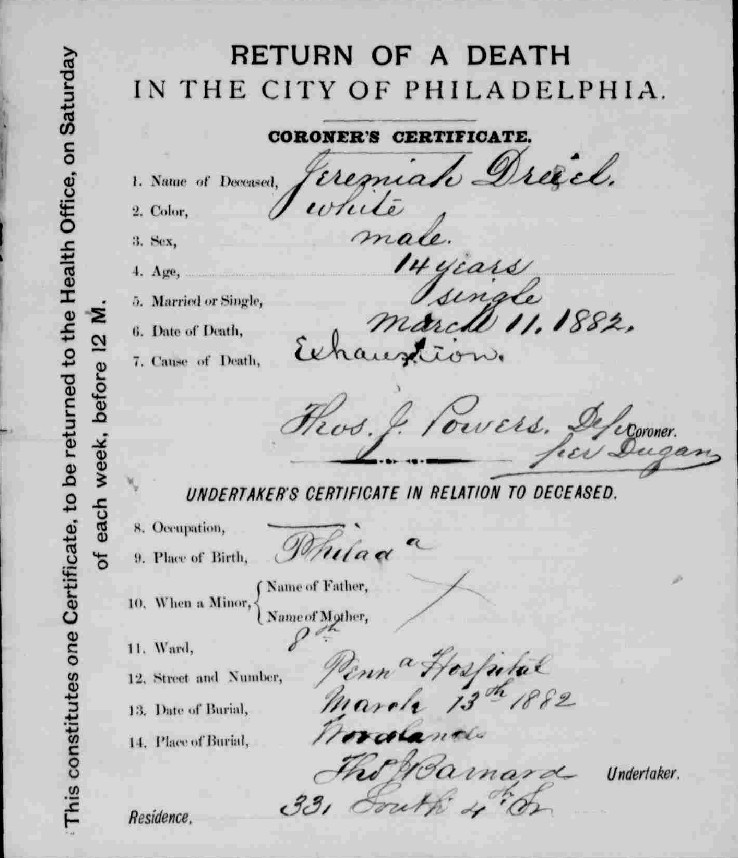 RETURN OF A DEATH
IN THE CITY OF PHILADELPHIA.
CORONER'S CERTIFICATE.
1. Name of Deceased, Jeremiah
2. Color, white
3. Sex, male.
4. Age, 14 years
5. Married or Single, single
6. Date of Death, March 11. 1882.
7. Cause of Death, Exhaustion.
Thos. J. Powers. Dep Coroner.
per Dugan
UNDERTAKER'S CERTIFICATE IN RELATION TO DECEASED.
8. Occupation,
9. Place of Birth, Philada
10. When a Minor, Name of Father,
Name of Mother,
11. Ward, 8th
12. Street and Number, Penna Hospital
13. Date of Burial, March 13th 1882
14. Place of Burial, Woodlands
Thos J Barnard Undertaker.
Residence, 331 South 4th St
This constitutes one Certificate, to be returned to the Health Office, on Saturday
of each week, before 12 M.